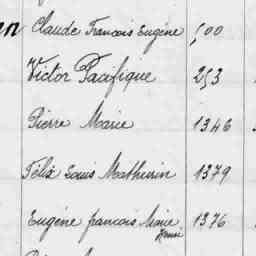 Claude Francois Eugène 500
Victor Pacifique 253
Pierre Marie 1346
Félix Louis Mathurin 1379
Eugène francois Marie 1376
Henri